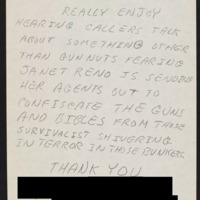 REALLY ENJOY
HEARING CALLERS TALK
ABOUT SOMETHING OTHER
THAN GUN NUTS FEARING
JANET RENO IS SENDING
HER AGENTS OUT TO
CONFISCATE THE GUNS
AND BIBLES FROM THOSE
SURVIVALIST SHIVERING
IN TERROR IN THOSE BUNKERS
THANK YOU